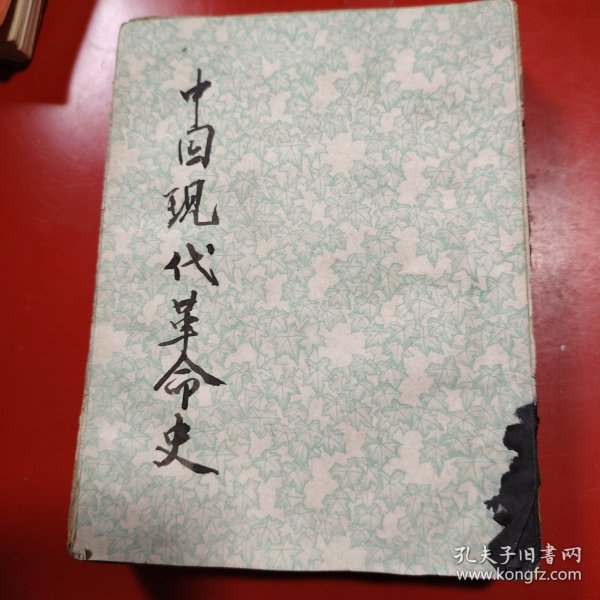 中国现代革命史
孔夫子旧书网
www.kongfz.com